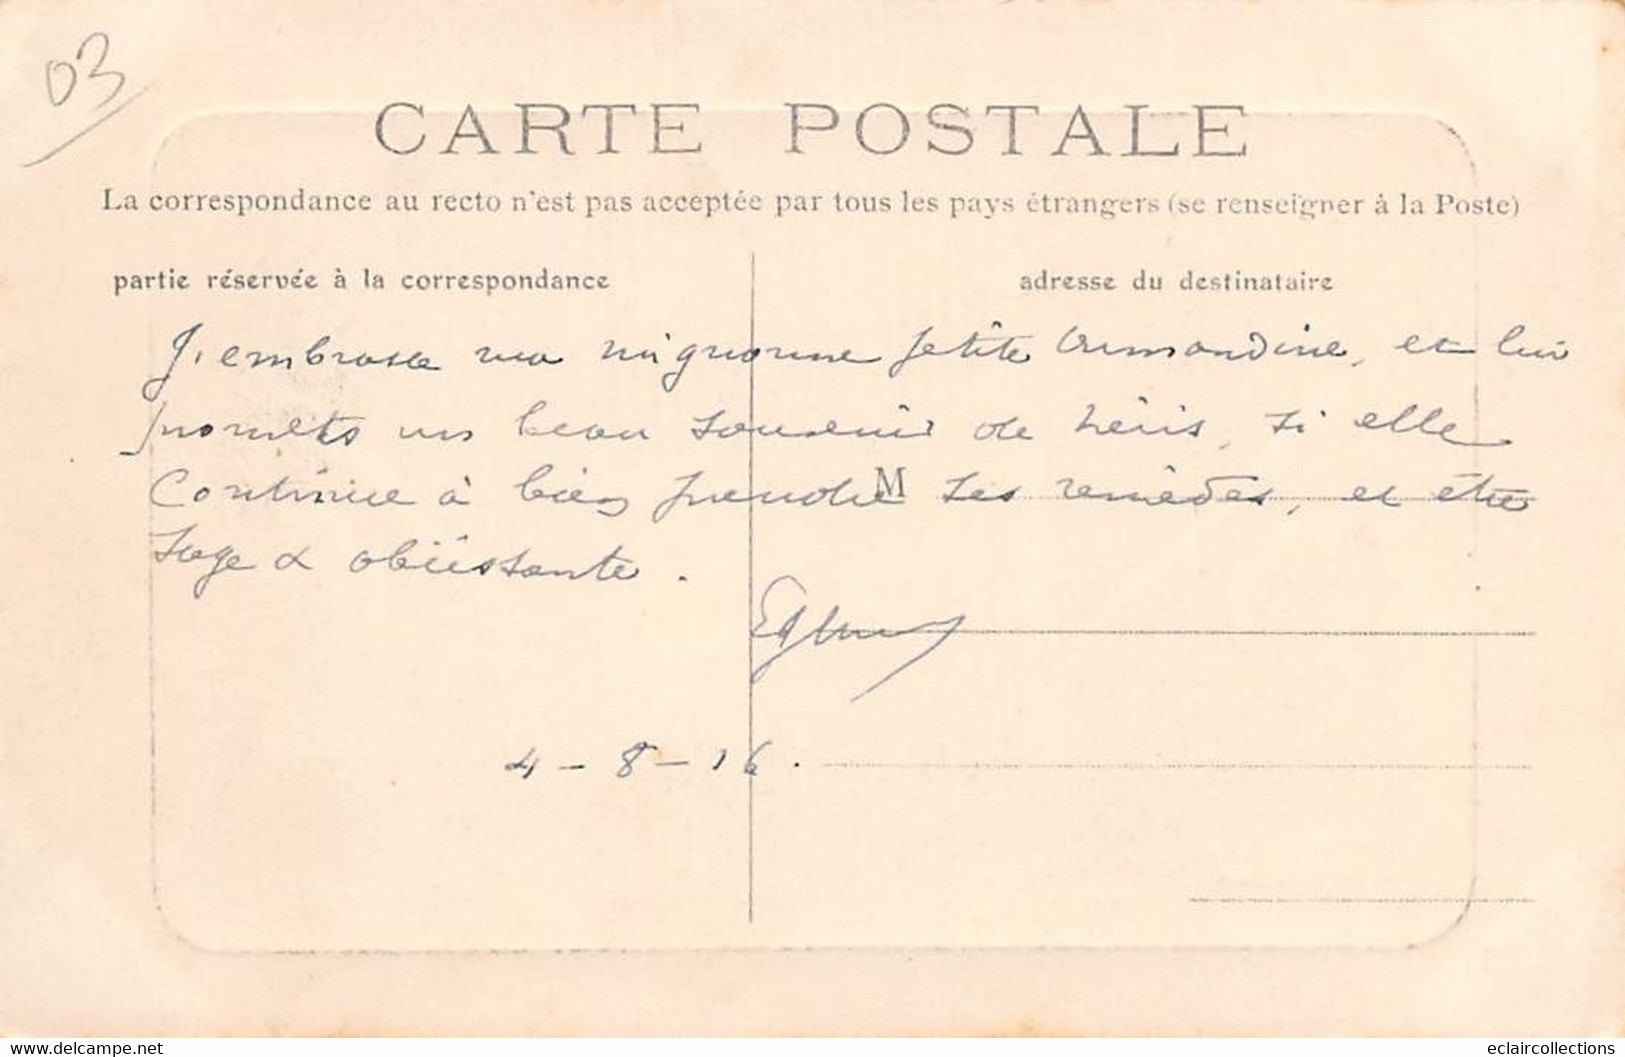 03
CARTE POSTALE
La correspondance au recto n'est pas acceptée par tous les pays étrangers (se renseigner à la Poste)
partie réservée à la correspondance
adresse du destinataire
J'embrasse ma mignonne petite Armandine, et lui
promets un beau souvenir de Néris, si elle
continue à bien prendre ses remèdes, et être
M
sage & obéissante.
4-8-16.
www.delcampe.net
eclaircollections